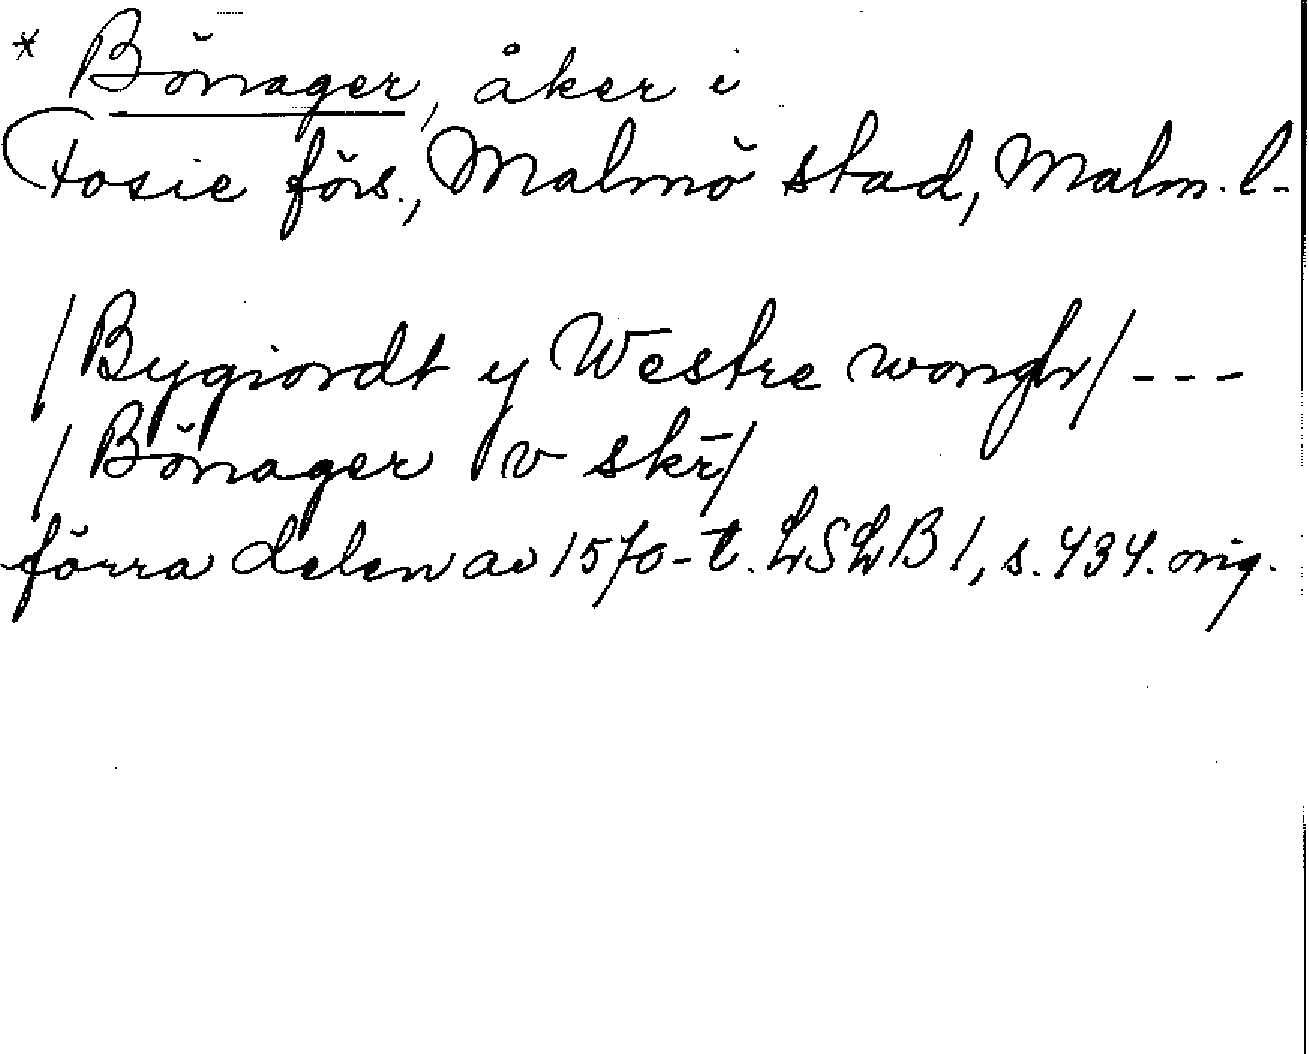 * Bönager, åker i
Fosie förs., Malmö stad, Malm. l.
/Bygiordt y Westre wongh/ ---
/Bönager v skr̄/
förra delen av 1570-t. LSLB 1, s. 434. orig.